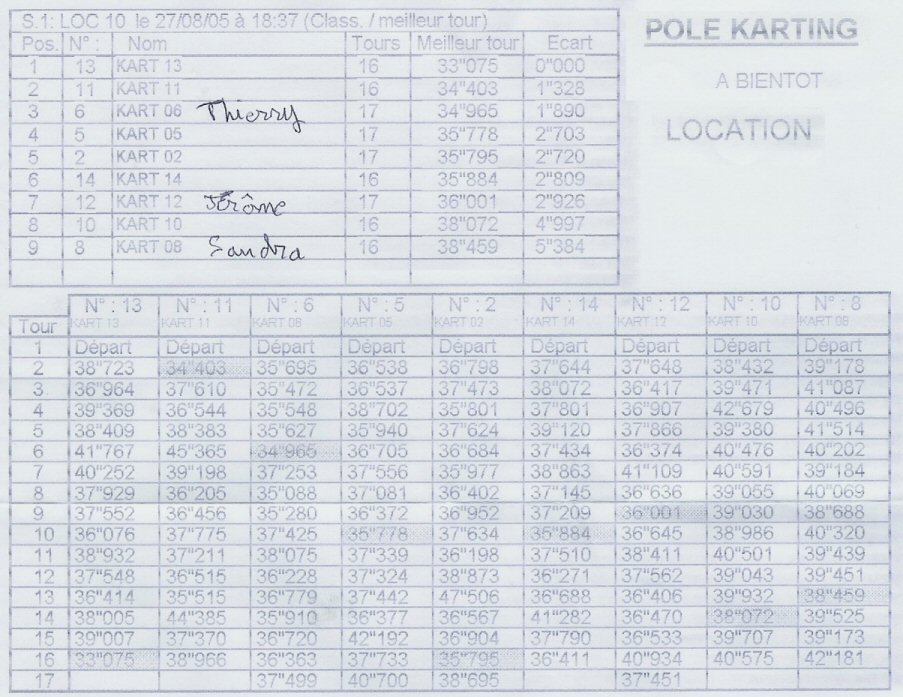 S.1: LOC 10 le 27/08/05 à 18:37 (Class. / meilleur tour)
Pos. N° : Nom Tours Meilleur tour Ecart
1 13 KART 13 16 33"075 0"000
2 11 KART 11 16 34"403 1"328
3 6 KART 06 Thierry 17 34"965 1"890
4 5 KART 05 17 35"778 2"703
5 2 KART 02 17 35"795 2"720
6 14 KART 14 16 35"884 2"809
7 12 KART 12 Jérôme 17 36"001 2"926
8 10 KART 10 16 38"072 4"997
9 8 KART 08 Sandra 16 38"459 5"384
POLE KARTING
A BIENTOT
LOCATION
N° : 13 N° : 11 N° : 6 N° : 5 N° : 2 N° : 14 N° : 12 N° : 10 N° : 8
Tour KART 13 KART 11 KART 06 KART 05 KART 02 KART 14 KART 12 KART 10 KART 08
1 Départ Départ Départ Départ Départ Départ Départ Départ Départ
2 38"723 34"403 35"695 36"538 36"798 37"644 37"648 38"432 39"178
3 36"964 37"610 35"472 36"537 37"473 38"072 36"417 39"471 41"087
4 39"369 36"544 35"548 38"702 35"801 37"801 36"907 42"679 40"496
5 38"409 38"383 35"627 35"940 37"624 39"120 37"866 39"380 41"514
6 41"767 45"365 34"965 36"705 36"684 37"434 36"374 40"476 40"202
7 40"252 39"198 37"253 37"556 35"977 38"863 41"109 40"591 39"184
8 37"929 36"205 35"088 37"081 36"402 37"145 36"636 39"055 40"069
9 37"552 36"456 35"280 36"372 36"952 37"209 36"001 39"030 38"688
10 36"076 37"775 37"425 35"778 37"634 35"884 36"645 38"986 40"320
11 38"932 37"211 38"075 37"339 36"198 37"510 38"411 40"501 39"439
12 37"548 36"515 36"228 37"324 38"873 36"271 37"562 39"043 39"451
13 36"414 35"515 36"779 37"442 47"506 36"688 36"406 39"932 38"459
14 38"005 44"385 35"910 36"377 36"567 41"282 36"470 38"072 39"525
15 39"007 37"370 36"720 42"192 36"904 37"790 36"533 39"707 39"173
16 33"075 38"966 36"363 37"733 35"795 36"411 40"934 40"575 42"181
17 37"499 40"700 38"695 37"451